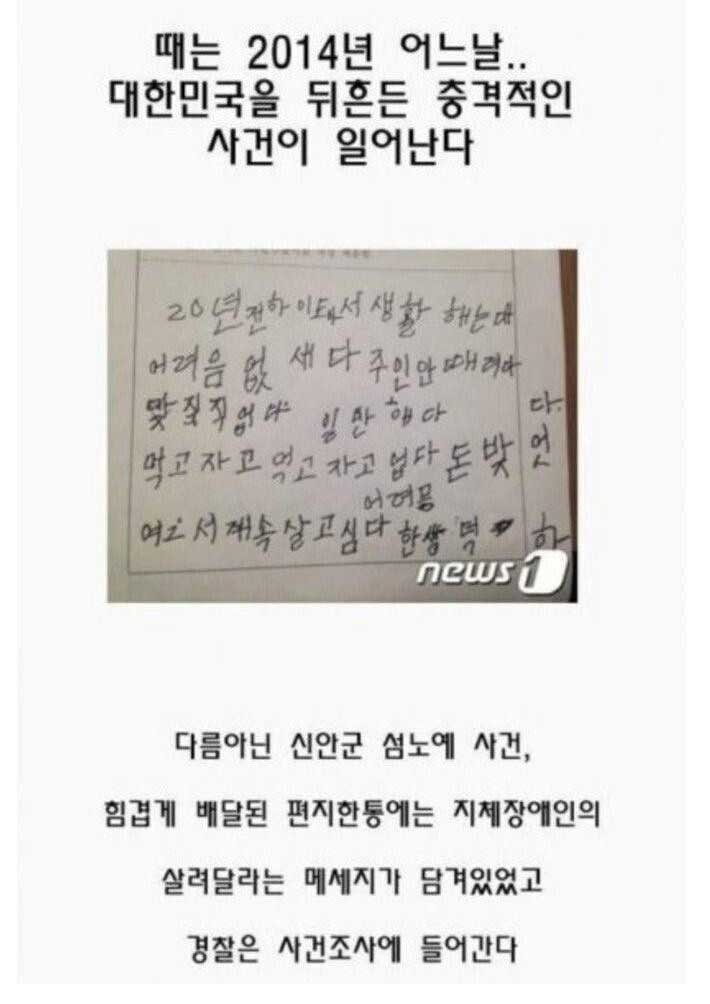 때는 2014년 어느날..
대한민국을 뒤흔든 충격적인
사건이 일어난다
20년전하이도에서 생활 해는데
어려음 없 새다 주인안때려다
맟질직 업다 임만 해다
먹고 자고 먹고 자고 업다 돈 밫 엇 다.
어려음
여그서 계속살고심다 한쌍 떡 하
news1
다름아닌 신안군 섬노예 사건,
힘겹게 배달된 편지한통에는 지체장애인의
살려달라는 메세지가 담겨있었고
경찰은 사건조사에 들어간다